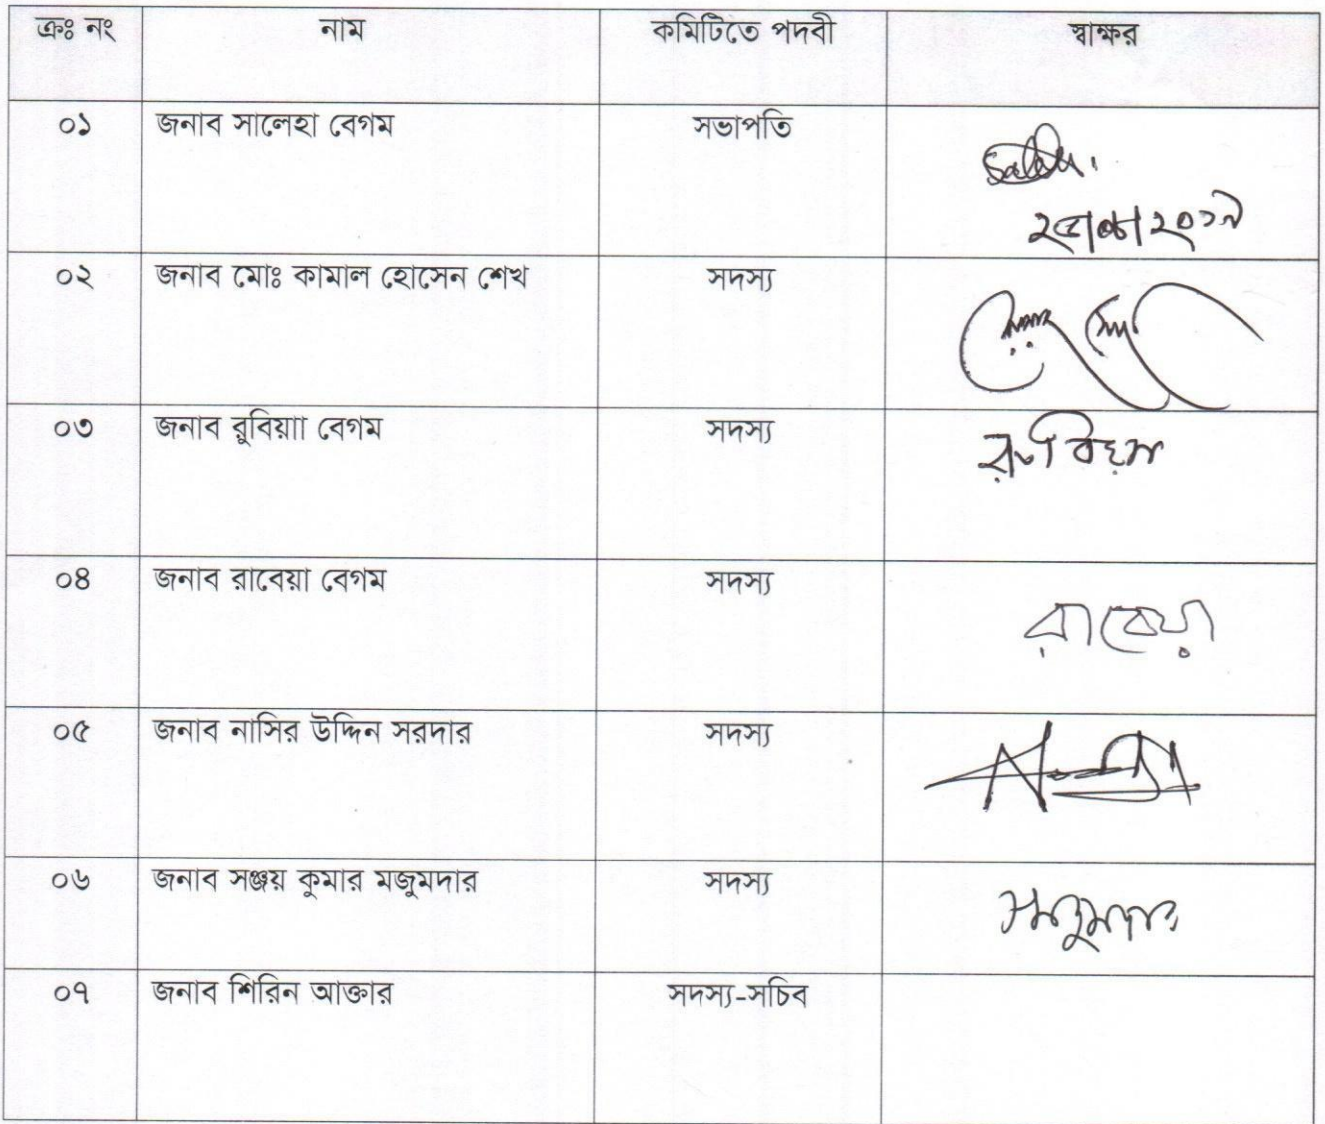 ক্রঃ নং নাম কমিটিতে পদবী স্বাক্ষর
০১ জনাব সালেহা বেগম সভাপতি
০২ জনাব মোঃ কামাল হোসেন শেখ সদস্য
০৩ জনাব রুবিয়াা বেগম সদস্য রুবিয়া
০৪ জনাব রাবেয়া বেগম সদস্য
রাবেয়া
০৫ জনাব নাসির উদ্দিন সরদার সদস্য
০৬ জনাব সঞ্জয় কুমার মজুমদার সদস্য
০৭ জনাব শিরিন আক্তার সদস্য-সচিব